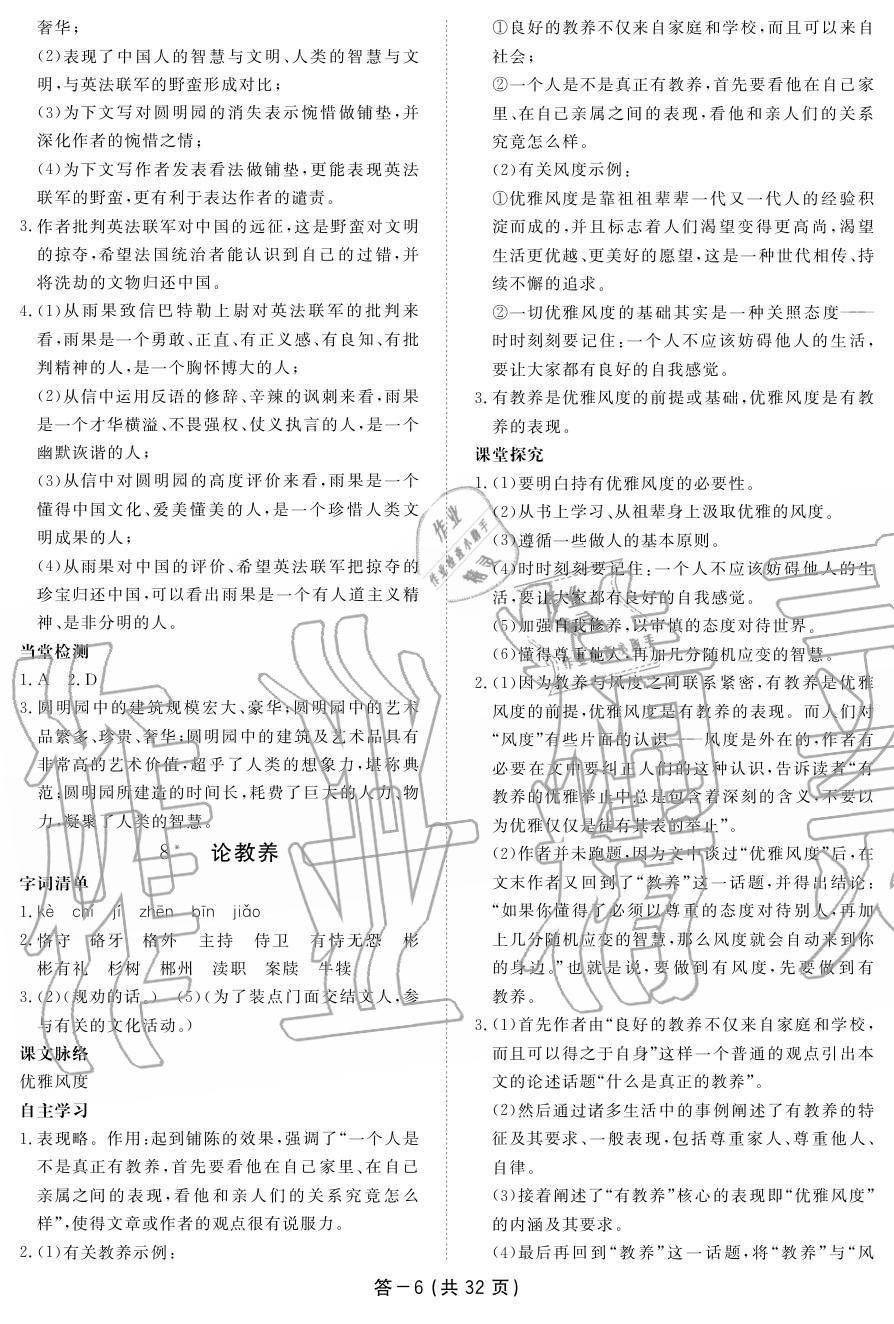 奢华;
(2)表现了中国人的智慧与文明、人类的智慧与文
明,与英法联军的野蛮形成对比;
(3)为下文写对圆明园的消失表示惋惜做铺垫,并
深化作者的惋惜之情;
(4)为下文写作者发表看法做铺垫,更能表现英法
联军的野蛮,更有利于表达作者的谴责。
3.作者批判英法联军对中国的远征,这是野蛮对文明
的掠夺,希望法国统治者能认识到自己的过错,并
将洗劫的文物归还中国。
4.(1)从雨果致信巴特勒上尉对英法联军的批判来
看,雨果是一个勇敢、正直、有正义感、有良知、有批
判精神的人,是一个胸怀博大的人;
(2)从信中运用反语的修辞、辛辣的讽刺来看,雨果
是一个才华横溢、不畏强权、仗义执言的人,是一个
幽默诙谐的人;
(3)从信中对圆明园的高度评价来看,雨果是一个
懂得中国文化、爱美懂美的人,是一个珍惜人类文
明成果的人;
(4)从雨果对中国的评价、希望英法联军把掠夺的
珍宝归还中国,可以看出雨果是一个有人道主义精
神、是非分明的人。
当堂检测
1.A 2.D
3.圆明园中的建筑规模宏大、豪华;圆明园中的艺术
品繁多、珍贵、奢华;圆明园中的建筑及艺术品具有
非常高的艺术价值,超乎了人类的想象力,堪称典
范;圆明园所建造的时间长,耗费了巨大的人力、物
力,凝聚了人类的智慧。
8* 论教养
字词清单
1.kè chǐ jí zhēn bīn jiǎo
2.恪守 硌牙 格外 主持 侍卫 有恃无恐 彬
彬有礼 杉树 郴州 渎职 案牍 牛犊
3.(2)(规劝的话。) (5)(为了装点门面交结文人,参
与有关的文化活动。)
课文脉络
优雅风度
自主学习
1.表现略。作用:起到铺陈的效果,强调了“一个人是
不是真正有教养,首先要看他在自己家里、在自己
亲属之间的表现,看他和亲人们的关系究竟怎么
样”,使得文章或作者的观点很有说服力。
2.(1)有关教养示例:
①良好的教养不仅来自家庭和学校,而且可以来自
社会;
②一个人是不是真正有教养,首先要看他在自己家
里、在自己亲属之间的表现,看他和亲人们的关系
究竟怎么样。
(2)有关风度示例:
①优雅风度是靠祖祖辈辈一代又一代人的经验积
淀而成的,并且标志着人们渴望变得更高尚,渴望
生活更优越、更美好的愿望,这是一种世代相传、持
续不懈的追求。
②一切优雅风度的基础其实是一种关照态度——
时时刻刻要记住:一个人不应该妨碍他人的生活,
要让大家都有良好的自我感觉。
3.有教养是优雅风度的前提或基础,优雅风度是有教
养的表现。
课堂探究
1.(1)要明白持有优雅风度的必要性。
(2)从书上学习、从祖辈身上汲取优雅的风度。
(3)遵循一些做人的基本原则。
(4)时时刻刻要记住:一个人不应该妨碍他人的生
活,要让大家都有良好的自我感觉。
(5)加强自我修养,以审慎的态度对待世界。
(6)懂得尊重他人,再加几分随机应变的智慧。
2.(1)因为教养与风度之间联系紧密,有教养是优雅
风度的前提,优雅风度是有教养的表现。而人们对
“风度”有些片面的认识——风度是外在的,作者有
必要在文中要纠正人们的这种认识,告诉读者“有
教养的优雅举止中总是包含着深刻的含义,不要以
为优雅仅仅是徒有其表的举止”。
(2)作者并未跑题,因为文中谈过“优雅风度”后,在
文末作者又回到了“教养”这一话题,并得出结论:
“如果你懂得了必须以尊重的态度对待别人,再加
上几分随机应变的智慧,那么风度就会自动来到你
的身边。”也就是说,要做到有风度,先要做到有
教养。
3.(1)首先作者由“良好的教养不仅来自家庭和学校,
而且可以得之于自身”这样一个普通的观点引出本
文的论述话题“什么是真正的教养”。
(2)然后通过诸多生活中的事例阐述了有教养的特
征及其要求、一般表现,包括尊重家人、尊重他人、
自律。
(3)接着阐述了“有教养”核心的表现即“优雅风度”
的内涵及其要求。
(4)最后再回到“教养”这一话题,将“教养”与“风
答－6(共32页)
作业
作业检查小助手
精灵